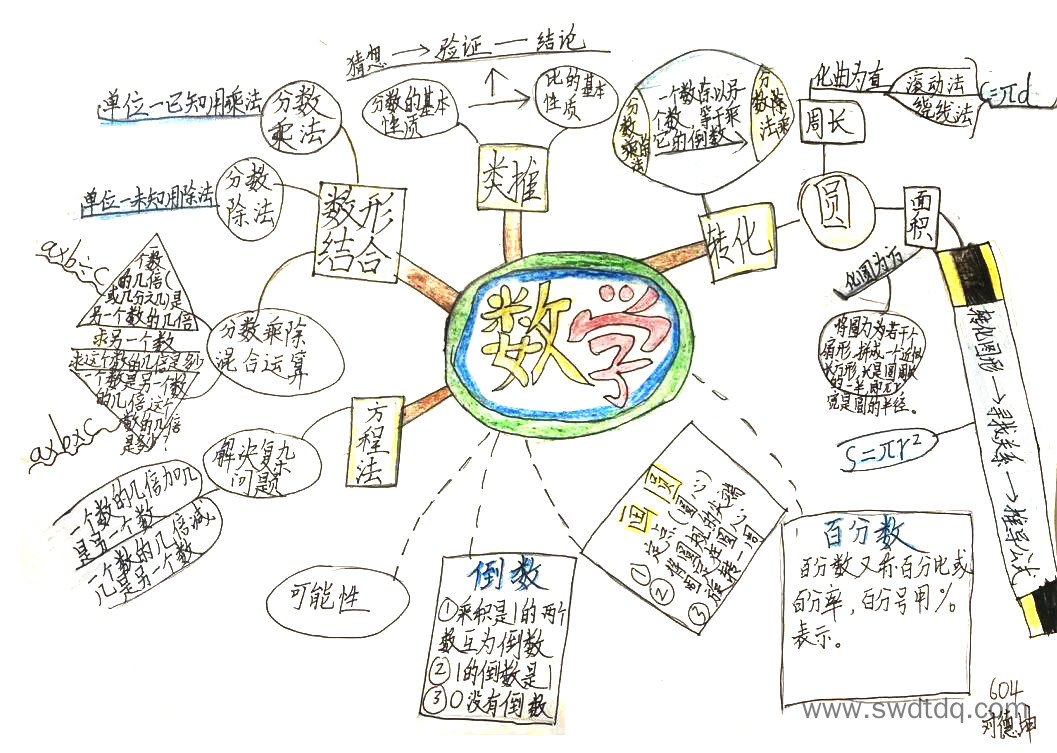 猜想 → 验证 — 结论
分数的基本
性质
比的基本
性质
类推
单位一已知用乘法
分数
乘法
单位一未知用除法
分数
除法
数形
结合
a×b÷c
一个数
的几倍(
或几分之几)是
另一个数的几倍
求另一个数
求这个数的几倍是多少
一个数是另一个数
的几倍这个
数的几倍
是多少?
a×b×c
分数乘除
混合运算
方程法
解决复杂
问题
一个数的几倍加几
是另一个数
一个数的几倍减
几是另一个数
数学
转化
一个数除以另
一个数等于乘
它的倒数
圆
周长
化曲为直
滚动法
绕线法
C=πd
面积
化圆为方
将圆分为若干个
扇形,拼成一个近似
长方形,
的一半,
宽是圆的半径。
S=πr²
转化图形→寻找关系→推导公式
可能性
倒数
①乘积是1的两个
数互为倒数
②1的倒数是1
③0没有倒数
画圆
①定点(圆心)
②
③旋转一周
百分数
百分数又称百分比或
百分率,百分号用%
表示。
604
www.swdtdq.com
刘德坤